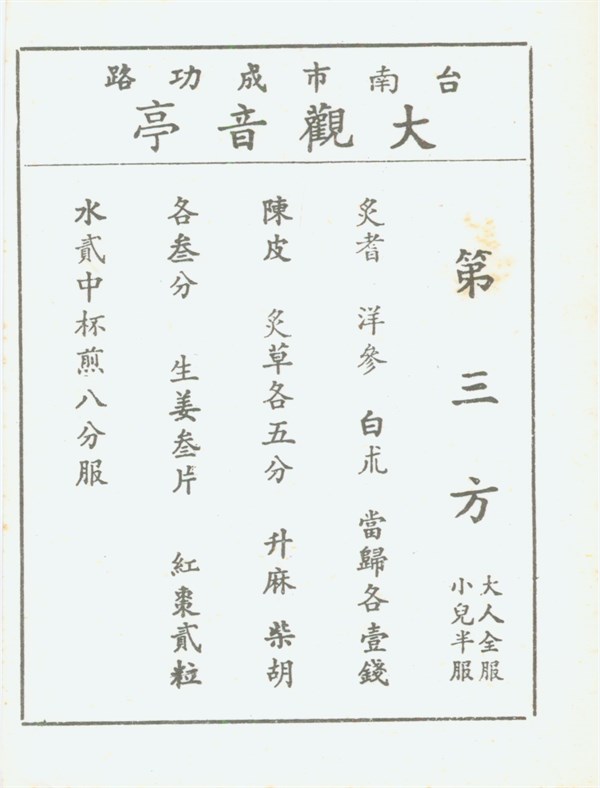 台南市成功路
大觀音亭
第三方
大人全服
小兒半服
炙耆 洋參 白朮 當歸各壹錢
陳皮 炙草各五分 升麻 柴胡
各叁分 生姜叁片 紅棗貳粒
水貳中杯煎八分服